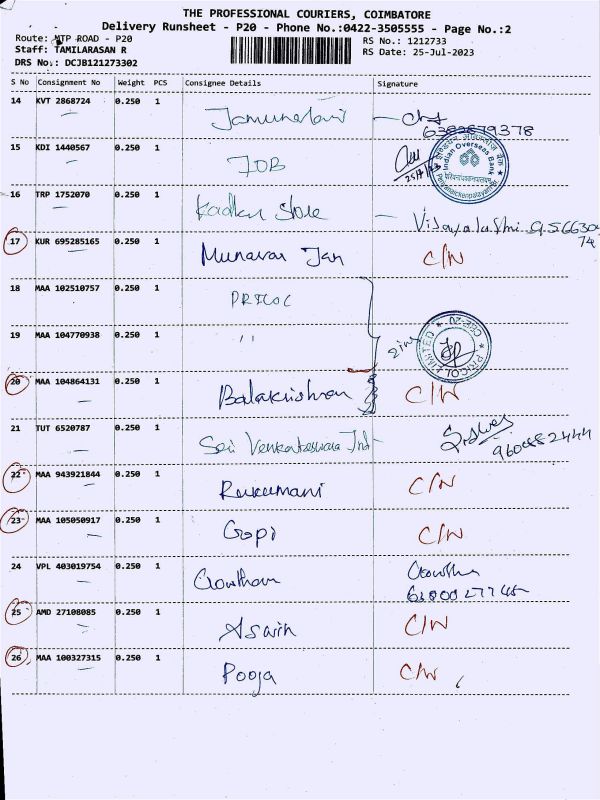 THE PROFESSIONAL COURIERS, COIMBATORE
Delivery Runsheet - P20 - Phone No.:0422-3505555 - Page No.:2
Route: MTP ROAD - P20
RS No.: 1212733
Staff: TAMILARASAN R
RS Date: 25-Jul-2023
DRS No.: DCJB121273302
S No Consignment No Weight PCS Consignee Details Signature
14 KVT 2868724 0.250 1 Jamunarani
6382879378
15 KDI 1440567 0.250 1 IOB
25/7/23
Indian Overseas Bank
16 TRP 1752070 0.250 1 Store
17 KUR 695285165 0.250 1 Munavar Jan C/N
18 MAA 102510757 0.250 1 PRICOL
19 MAA 104770938 0.250 1 ''
PRICOL LIMITED
20 MAA 104864131 0.250 1 Balakrishnan C/N
21 TUT 6520787 0.250 1 Sri Venkateswara Ind
22 MAA 943921844 0.250 1 Rukumani C/N
23 MAA 105050917 0.250 1 Gopi C/N
24 VPL 403019754 0.250 1 Gowtham
25 AMD 27108085 0.250 1 C/N
26 MAA 100327315 0.250 1 Pooja C/N